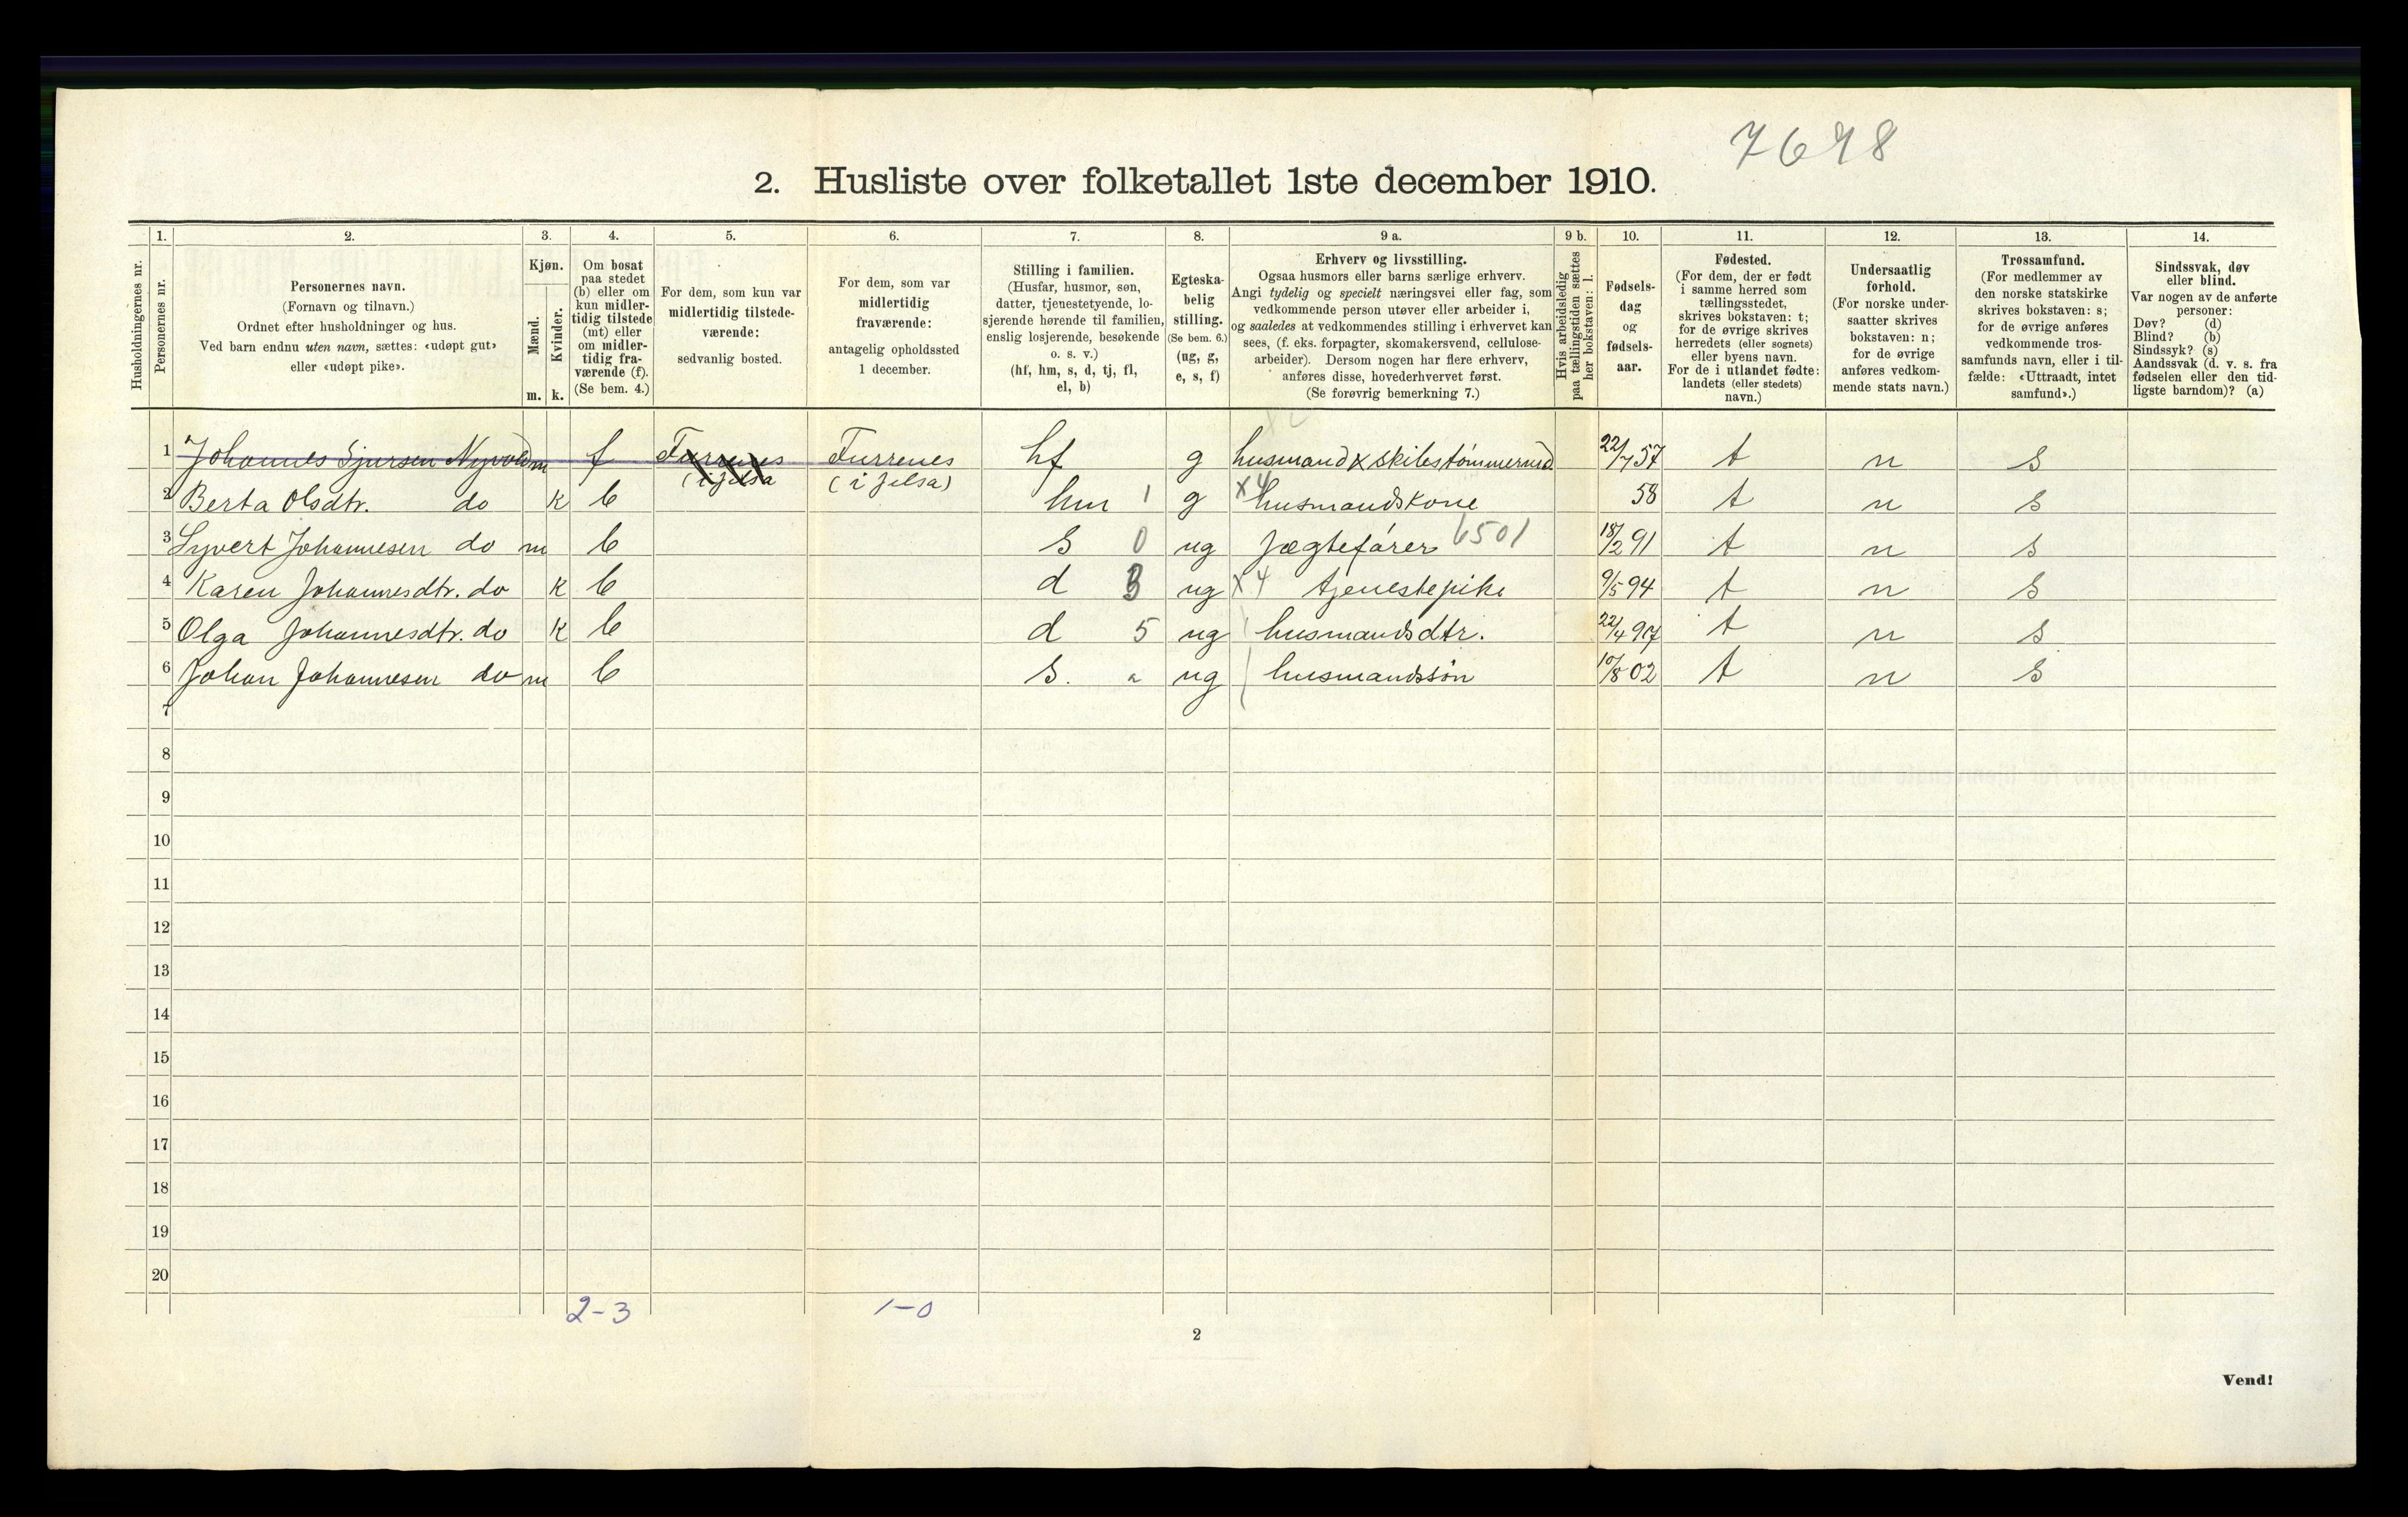 7678
2. Husliste over folketallet 1ste december 1910.
Husholdningernes nr.
1.
Personernes nr.
2.
Personernes navn.
(Fornavn og tilnavn.)
Ordnet efter husholdninger og hus.
Ved barn endnu uten navn, sættes: «udøpt gut»
eller «udøpt pike».
3.
Kjøn.
Mænd.
Kvinder.
m. k.
4.
Om bosat
paa stedet
(b) eller om
kun midler-
tidig tilstede
(mt) eller
om midler-
tidig fra-
værende (f).
(Se bem. 4.)
5.
For dem, som kun var
midlertidig tilstede-
værende:
sedvanlig bosted.
6.
For dem, som var
midlertidig
fraværende:
antagelig opholdssted
1 december.
7.
Stilling i familien.
(Husfar, husmor, søn,
datter, tjenestetyende, lo-
sjerende hørende til familien,
enslig losjerende, besøkende
o. s. v.)
(hf, hm, s, d, tj, fl,
el, b)
8.
Egteska-
belig
stilling.
(Se bem. 6.)
(ug, g,
e, s, f)
9 a.
Erhverv og livsstilling.
Ogsaa husmors eller barns særlige erhverv.
Angi tydelig og specielt næringsvei eller fag, som
vedkommende person utøver eller arbeider i,
og saaledes at vedkommendes stilling i erhvervet kan
sees, (f. eks. forpagter, skomakersvend, cellulose-
arbeider). Dersom nogen har flere erhverv,
anføres disse, hovederhvervet først.
(Se forøvrig bemerkning 7.)
9 b.
Hvis arbeidsledig
paa tællingstiden sættes
her bokstaven: l.
10.
Fødsels-
dag
og
fødsels-
aar.
11.
Fødested.
(For dem, der er født
i samme herred som
tællingsstedet,
skrives bokstaven: t;
for de øvrige skrives
herredets (eller sognets)
eller byens navn.
For de i utlandet fødte:
landets (eller stedets)
navn.)
12.
Undersaatlig
forhold.
(For norske under-
saatter skrives
bokstaven: n;
for de øvrige
anføres vedkom-
mende stats navn.)
13.
Trossamfund.
(For medlemmer av
den norske statskirke
skrives bokstaven: s;
for de øvrige anføres
vedkommende tros-
samfunds navn, eller i til-
fælde: «Uttraadt, intet
samfund».)
14.
Sindssvak, døv
eller blind.
Var nogen av de anførte
personer:
Døv? (d)
Blind? (b)
Sindssyk? (s)
Aandssvak (d. v. s. fra
fødselen eller den tid-
ligste barndom)? (a)
1 Johannes Sjursen Nyvold m f Furrenes Furrenes hf g husmand x skibstømmermd 22/7 57 t n s
(i Jelsa (i Jelsa)
2 Berta Olsdtr. do k b hm 1 g x4 husmandskone 58 t n s
3 Syvert Johannesen do m b s 0 ug Jægtefører 6501 18/2 91 t n s
4 Karen Johannesdtr. do k b d 3 ug x4 tjenestepike 9/5 94 t n s
5 Olga Johannesdtr. do k b d 5 ug husmandsdtr. 22/4 97 t n s
6 Johan Johannesen do m b s. a ug husmandssøn 10/8 02 t n s
7
8
9
10
11
12
13
14
15
16
17
18
19
20
2-3 1-0
2
Vend!